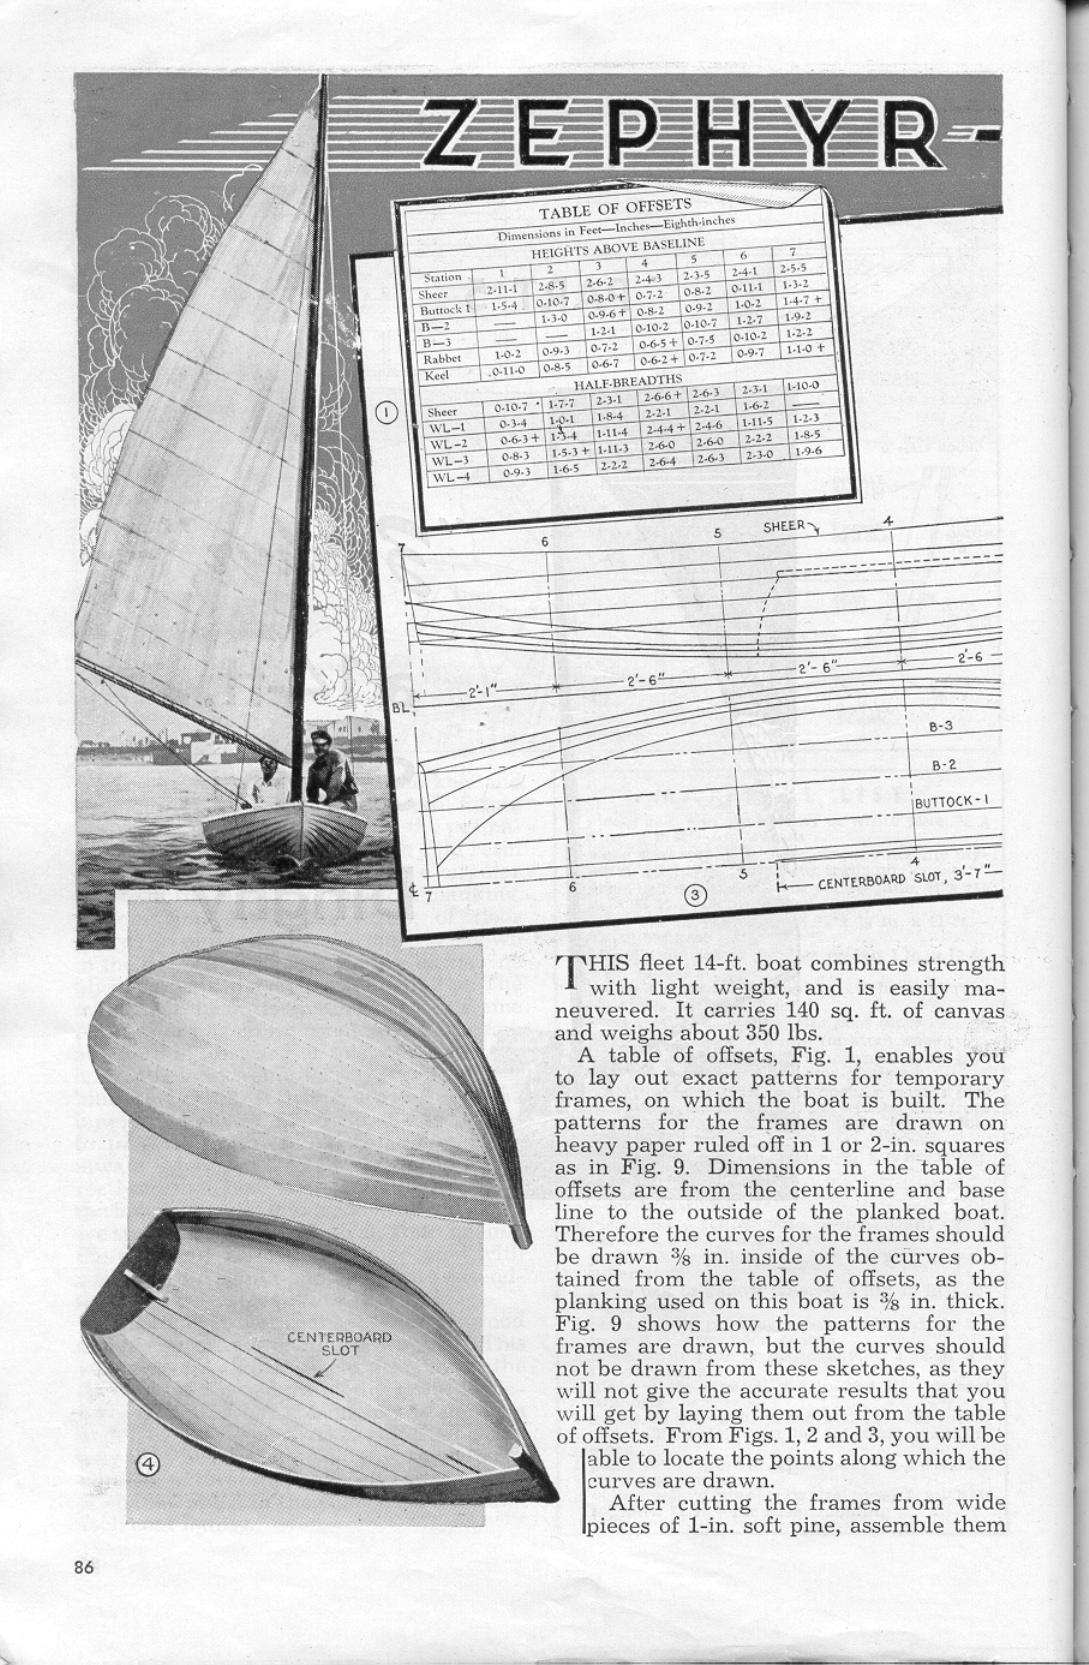 ZEPHYR-
TABLE OF OFFSETS
Dimensions in Feet—Inches—Eighth-inches
HEIGHTS ABOVE BASELINE
Station 1 2 3 4 5 6 7
Sheer 2-11-1 2-8-5 2-6-2 2-4-3 2-3-5 2-4-1 2-5-5
Buttock 1 1-5-4 0-10-7 0-8-0+ 0-7-2 0-8-2 0-11-1 1-3-2
B—2 — 1-3-0 0-9-6+ 0-8-2 0-9-2 1-0-2 1-4-7+
B—3 — — 1-2-1 0-10-2 0-10-7 1-2-7 1-9-2
Rabbet 1-0-2 0-9-3 0-7-2 0-6-5+ 0-7-5 0-10-2 1-2-2
Keel 0-11-0 0-8-5 0-6-7 0-6-2+ 0-7-2 0-9-7 1-1-0+
HALF-BREADTHS
Sheer 0-10-7 1-7-7 2-3-1 2-6-6+ 2-6-3 2-3-1 1-10-0
WL—1 0-3-4 1-0-1 1-8-4 2-2-1 2-2-1 1-6-2 —
WL—2 0-6-3+ 1-3-4 1-11-4 2-4-4+ 2-4-6 1-11-5 1-2-3
WL—3 0-8-3 1-5-3+ 1-11-3 2-6-0 2-6-0 2-2-2 1-8-5
WL—4 0-9-3 1-6-5 2-2-2 2-6-4 2-6-3 2-3-0 1-9-6
1
7 6 5 SHEER 4
2'-1" 2'-6" 2'-6" 2'-6
BL
B-3
B-2
BUTTOCK-1
℄ 7 6 5 4
CENTERBOARD SLOT, 3'-7"
3
THIS fleet 14-ft. boat combines strength
with light weight, and is easily ma-
neuvered. It carries 140 sq. ft. of canvas
and weighs about 350 lbs.
A table of offsets, Fig. 1, enables you
to lay out exact patterns for temporary
frames, on which the boat is built. The
patterns for the frames are drawn on
heavy paper ruled off in 1 or 2-in. squares
as in Fig. 9. Dimensions in the table of
offsets are from the centerline and base
line to the outside of the planked boat.
Therefore the curves for the frames should
be drawn ⅜ in. inside of the curves ob-
tained from the table of offsets, as the
planking used on this boat is ⅜ in. thick.
Fig. 9 shows how the patterns for the
frames are drawn, but the curves should
not be drawn from these sketches, as they
will not give the accurate results that you
will get by laying them out from the table
of offsets. From Figs. 1, 2 and 3, you will be
able to locate the points along which the
curves are drawn.
After cutting the frames from wide
pieces of 1-in. soft pine, assemble them
CENTERBOARD
SLOT
4
86